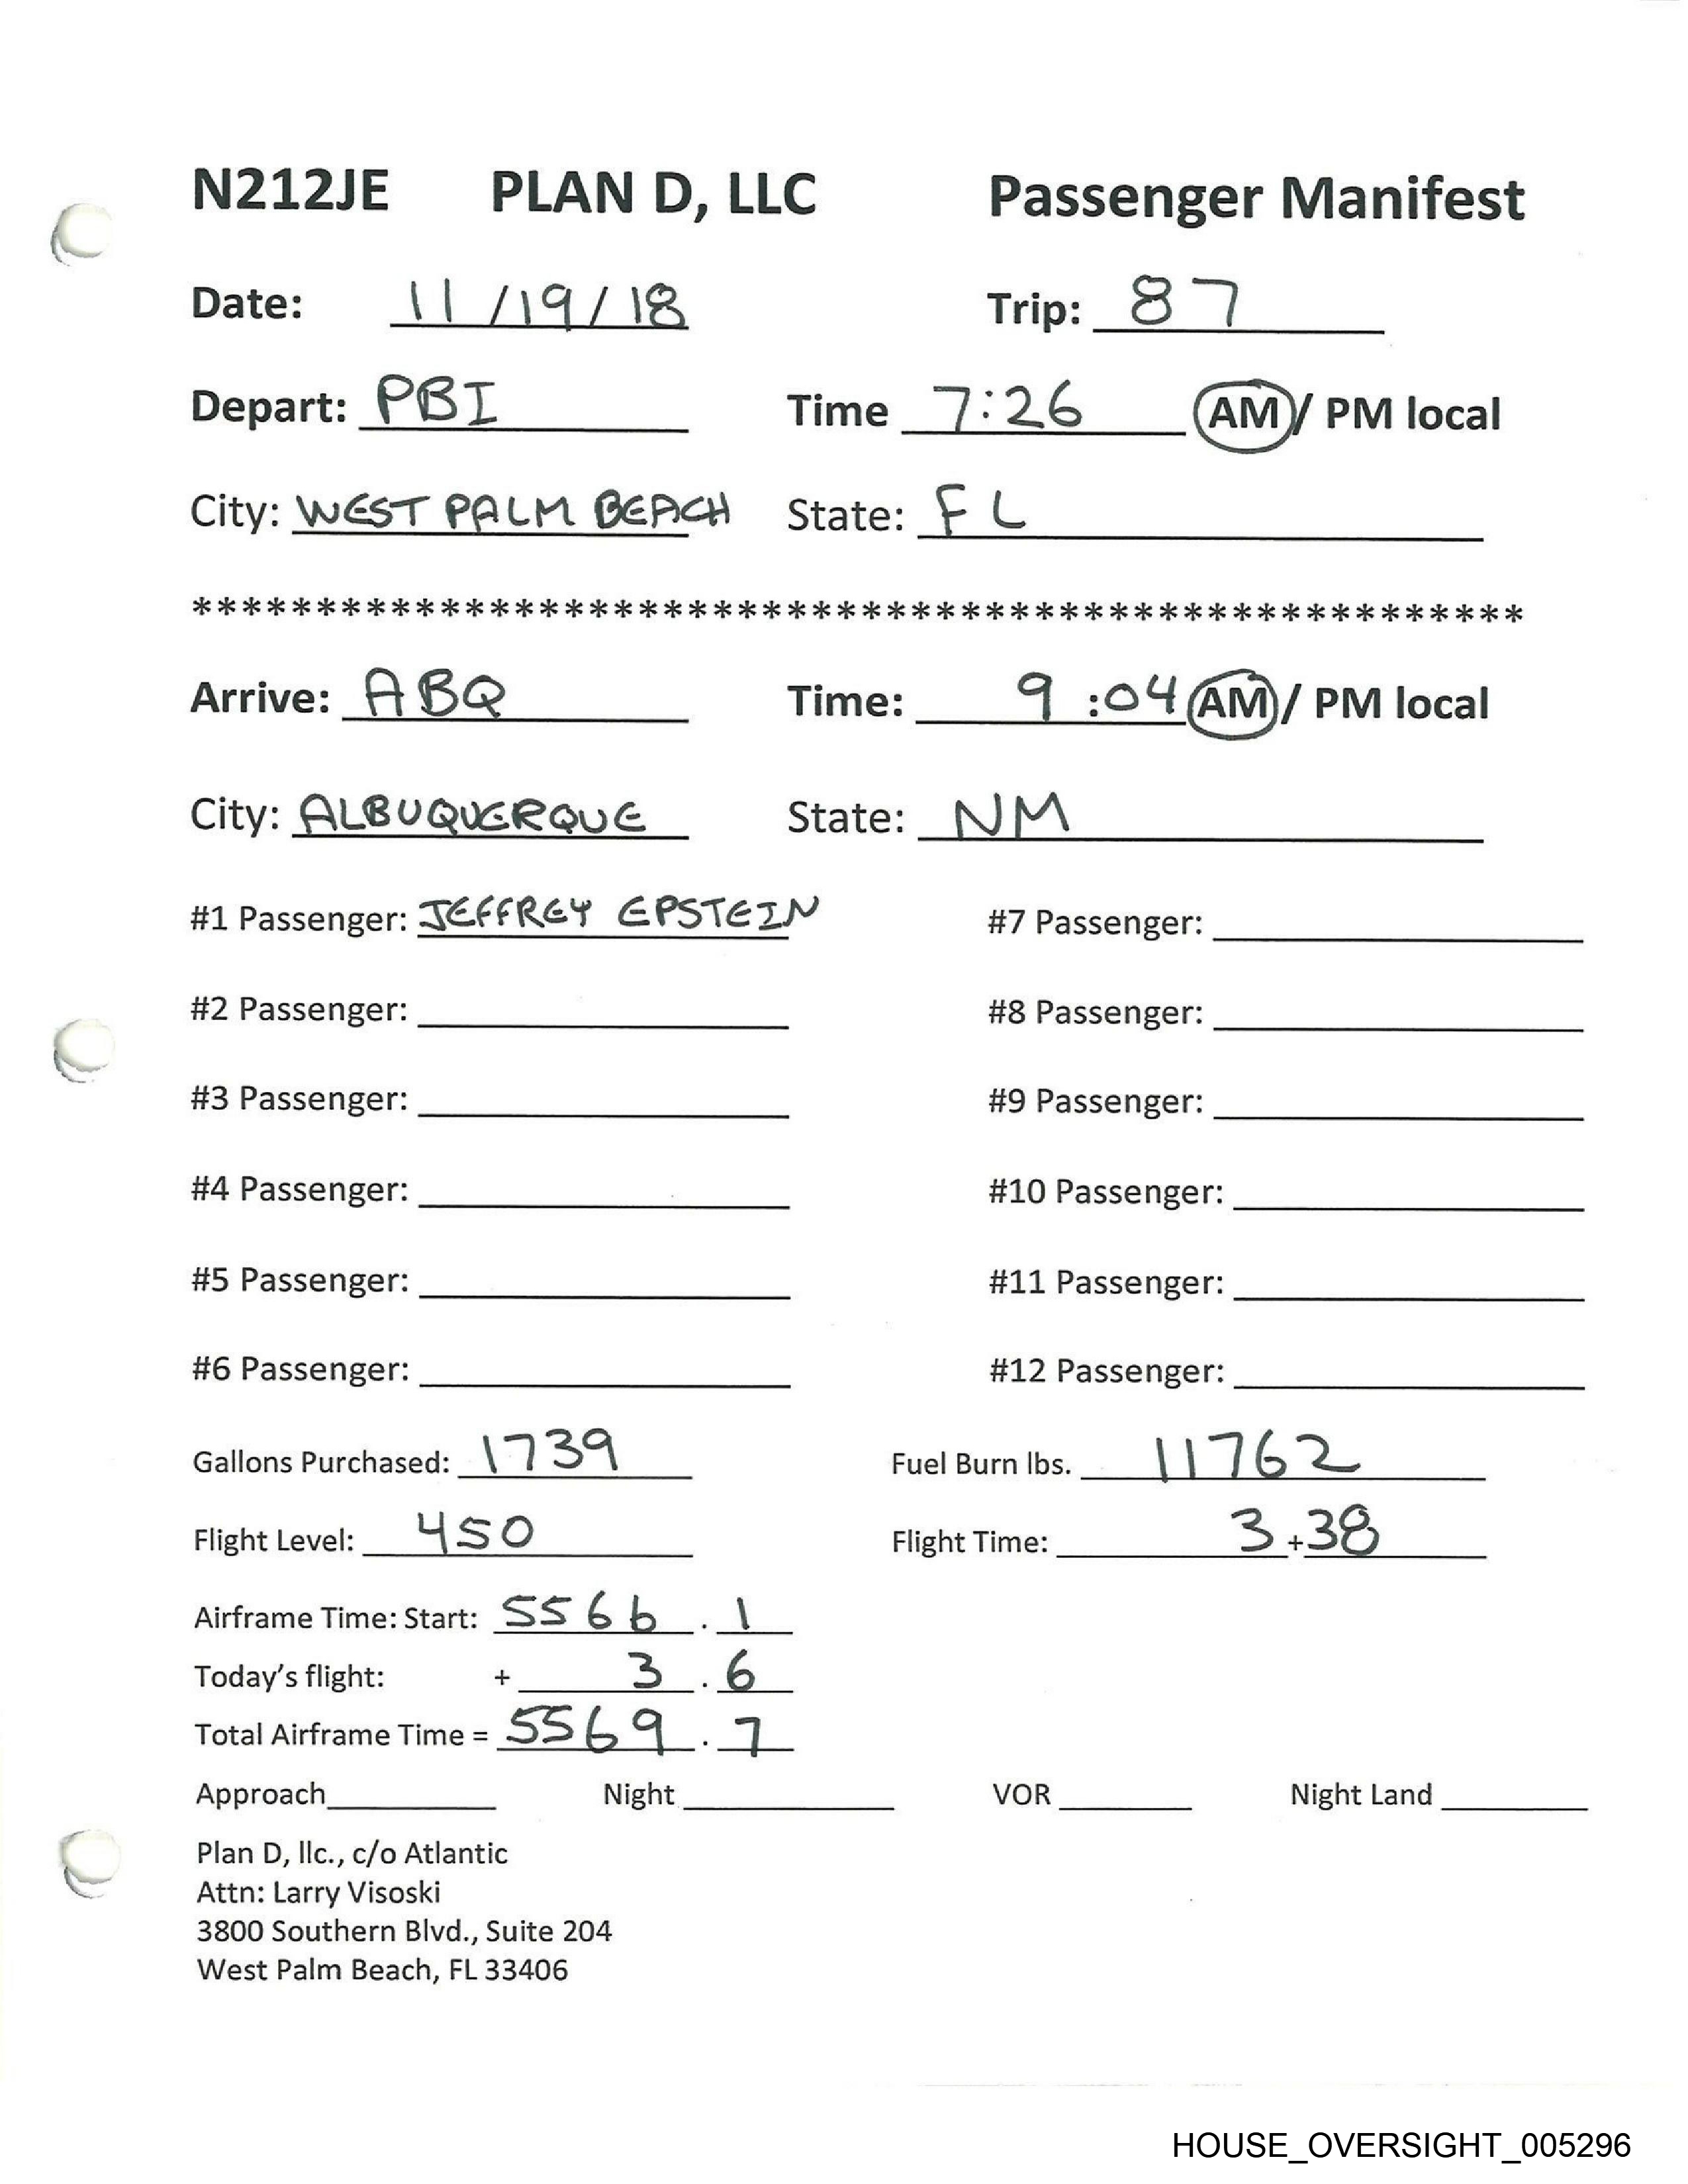 N212JE PLAN D, LLC Passenger Manifest
Date: 11/19/18 Trip: 87
Depart: PBI Time 7:26 AM / PM local
City: WEST PALM BEACH State: FL
******************************************************
Arrive: ABQ Time: 9:04 AM / PM local
City: ALBUQUERQUE State: NM
#1 Passenger: JEFFREY EPSTEIN #7 Passenger:
#2 Passenger: #8 Passenger:
#3 Passenger: #9 Passenger:
#4 Passenger: #10 Passenger:
#5 Passenger: #11 Passenger:
#6 Passenger: #12 Passenger:
Gallons Purchased: 1739 Fuel Burn lbs. 11762
Flight Level: 450 Flight Time: 3+38
Airframe Time: Start: 5566.1
Today's flight: + 3.6
Total Airframe Time = 5569.7
Approach Night VOR Night Land
Plan D, llc., c/o Atlantic
Attn: Larry Visoski
3800 Southern Blvd., Suite 204
West Palm Beach, FL 33406
HOUSE_OVERSIGHT_005296